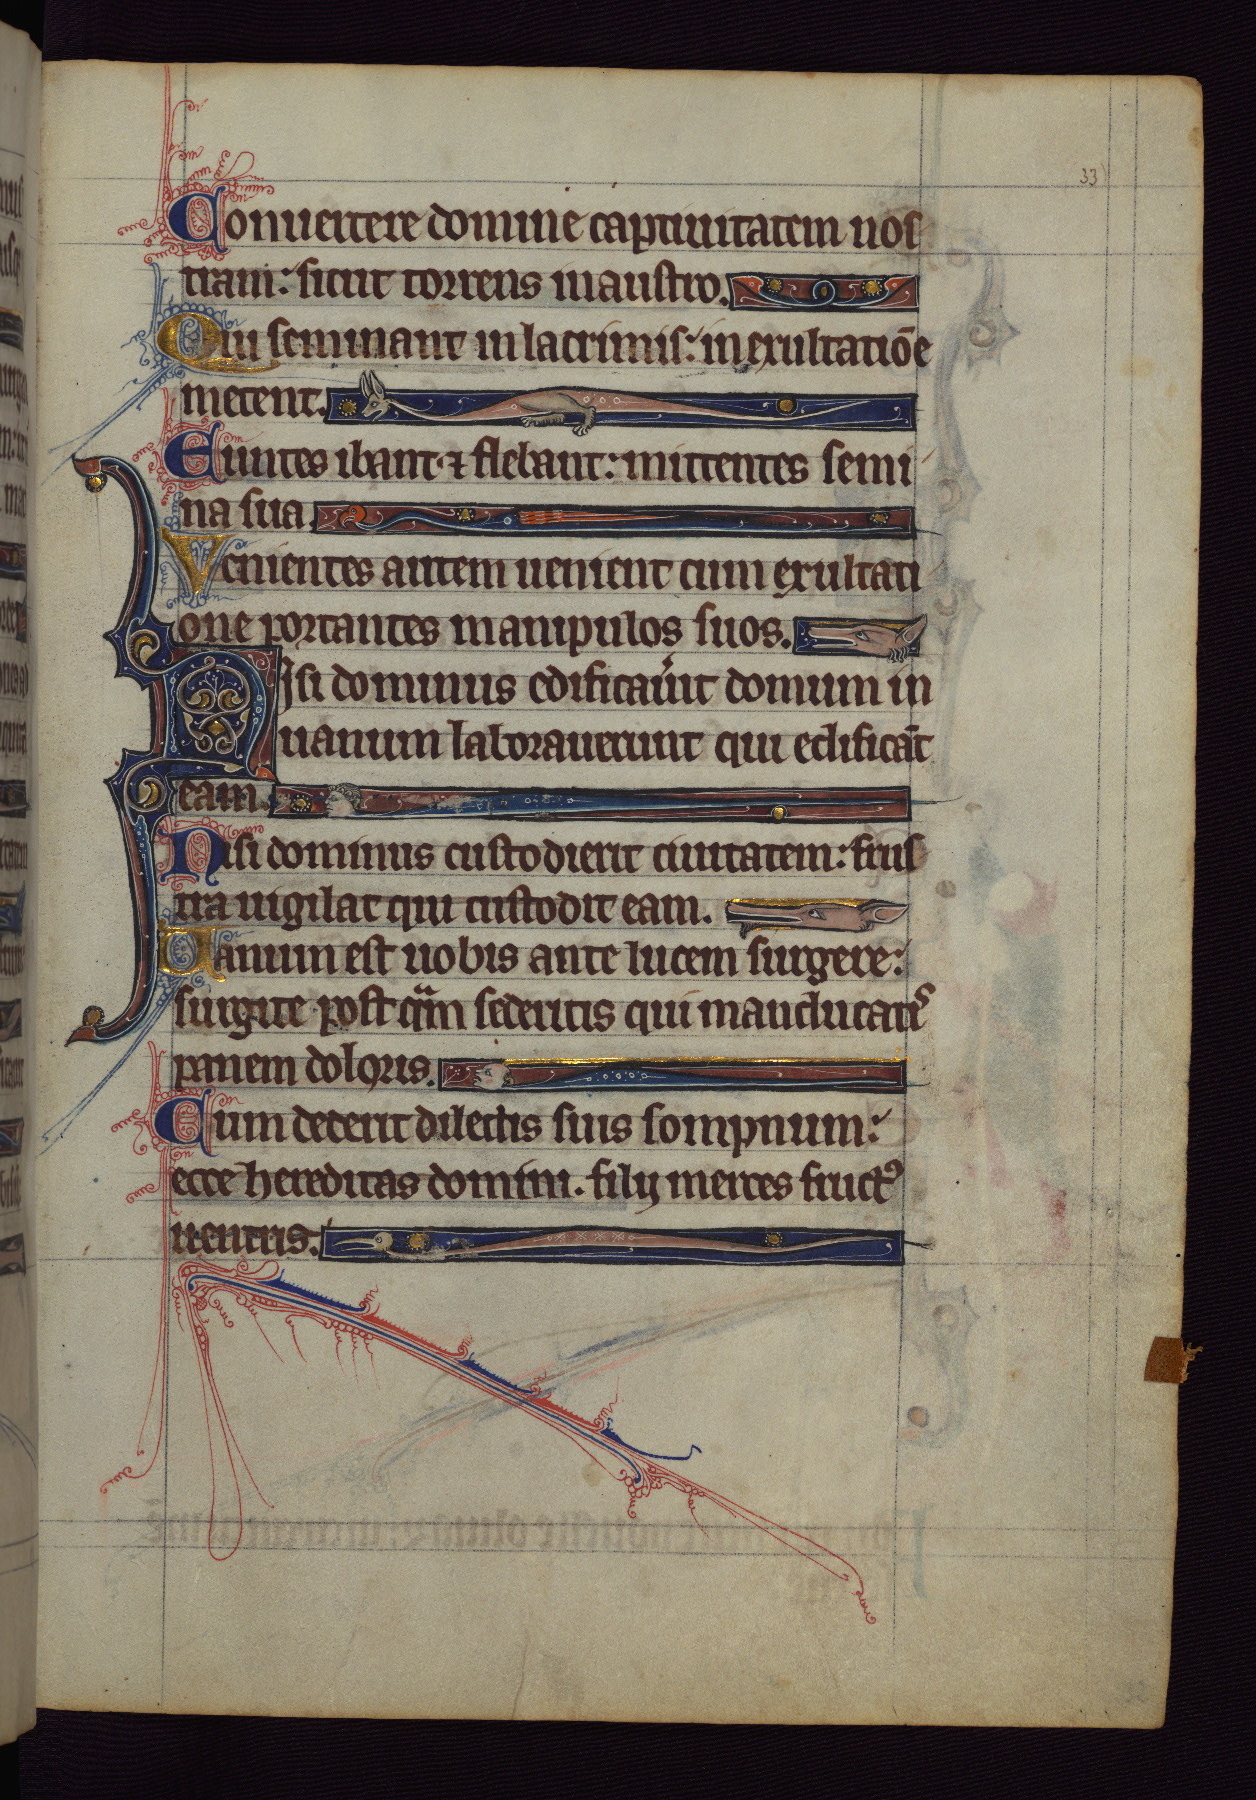 33
Conuertere domine captiuitatem nos
tram: sicut torrens in austro.
Qui seminant in lacrimis: in exultatiōe
metent.
Euntes ibant ⁊ flebant: mittentes semi
na sua
Venientes autem uenient cum exultati
one portantes manipulos suos.
Nisi dominus edificau͛it domum in
uanum laborauerunt qui edificāt
eam.
Nisi dominus custodierit ciuitatem: frus
tra uigilat qui custodit eam.
Uanum est uobis ante lucem surgere:
surgite post qᷓm sederitis qui manducatis
panem doloris.
Cum dederit dilectis suis sompnum:
ecce hereditas domini. filij merces fructꝰ
uentris.